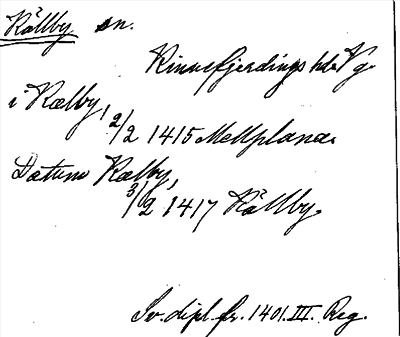 Källby sn.
Kinnefjerdings hd Vg.
i Kælby,
2/2 1415 Mellplana.
Datum Kælby,
3/2 1417 Källby.
Sv. dipl. fr. 1401. III. Reg.